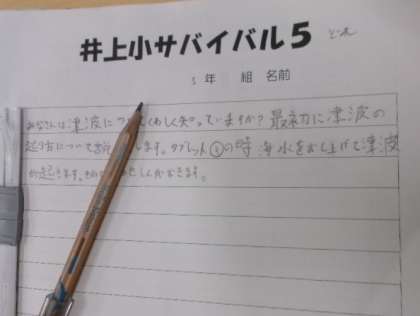 井上小サバイバル5
5年 組 名前
みなさんは津波についてくわしく知っていますか?最初に津波の
起り方について します。タブレット①の時 海水をおし上げて津波
が起きます。